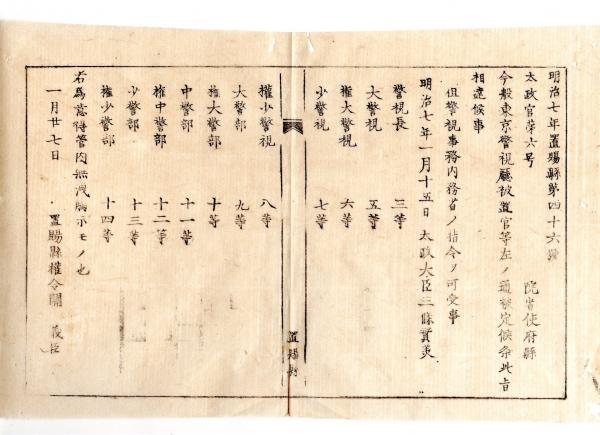 明治七年置賜縣第四十六號
太政官第六号
院省使府縣
今般東京警視廳被置官等左ノ通被定候条此旨
相達候事
但警視事務内務省ノ指令ヲ可受事
明治七年一月十五日 太政大臣三條實美
警視長 三等
大警視 五等
權大警視 六等
少警視 七等
置賜縣
權少警視 八等
大警部 九等
權大警部 十等
中警部 十一等
權中警部 十二等
少警部 十三等
權少警部 十四等
右為心得管内無洩觸示モノ也
一月廿七日 置賜縣權令關義臣